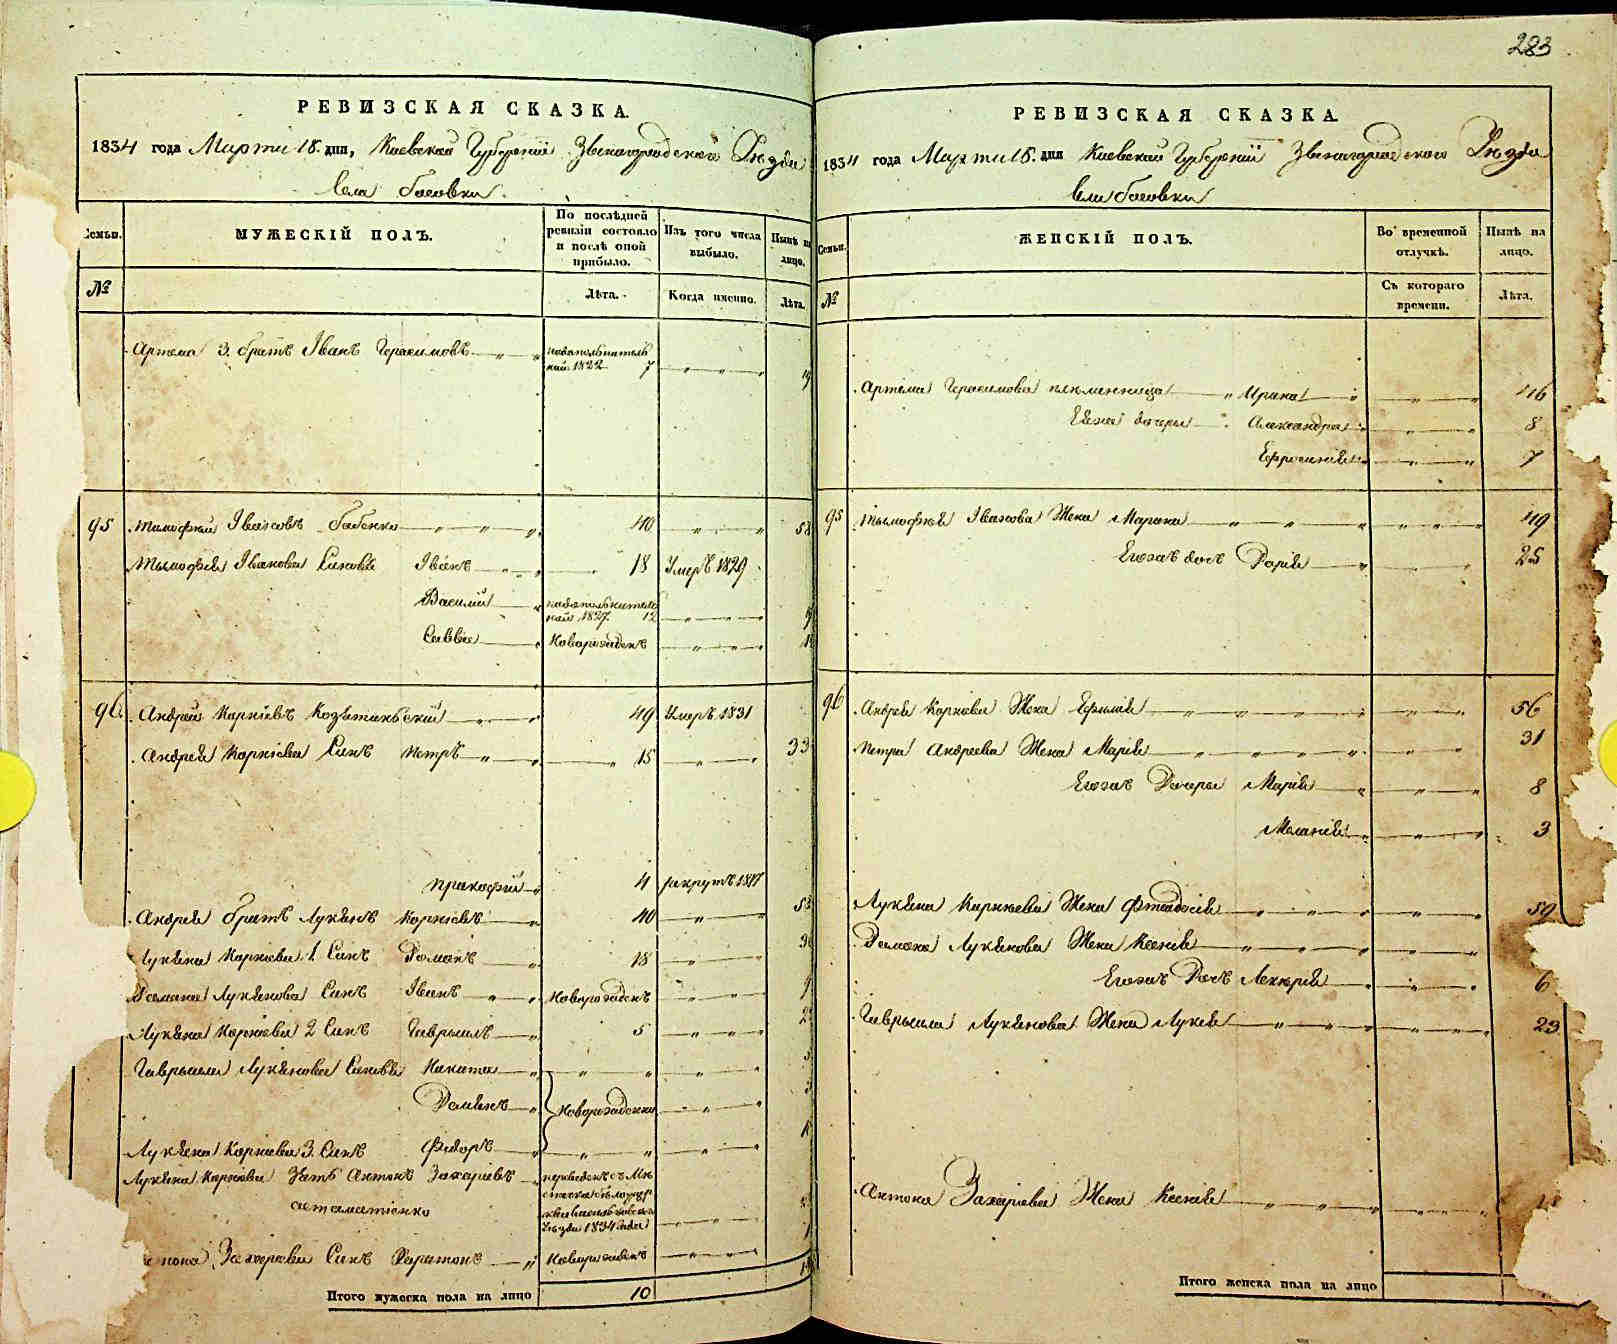 283
РЕВИЗСКАЯ СКАЗКА.
1834 года Марта 18. дня, Киевской Губерний Звенигородского Уезда
Села Босовки
Семьи.
МУЖЕСКІЙ ПОЛЪ.
По послѣдней ревизіи состояло и послѣ оной прибыло.
Изъ того числа выбыло.
Нынѣ на лицо.
№
Лѣта.
Когда именно.
Лѣта.
Артема 3. братъ Іванъ Герасимовъ 7
1822
95 Тимофей Івановъ Бабенко 40
Тимофея Іванова Синовья Іванъ 18 Умеръ 1829
Василий 1827. 12
Савва Новорожденъ
96. Андрей Корніевъ 49 Умеръ 1831
Андрея Корніева Синъ Петръ 15 33
Прокофий 4 1817
Андрея братъ Лукянъ Корніевъ 40
Лукяна Корніева 1. Синъ Романъ 18
Романа Лукянова Синъ Іванъ Новорожденъ
Лукяна Корніева 2 Синъ Гаврыилъ 5
Гаврыила Лукянова Синовья Никита
Демянъ Новорожденни
Лукяна Корніева 3. Синъ Федоръ
Лукяна Корніева Зять Антонъ Захаріевъ
1834 года
Захаріева Синъ Харитонъ Новорожденъ
Итого мужеска пола на лицо 10
РЕВИЗСКАЯ СКАЗКА.
1834 года Марта 18. дня Киевской Губерний Звенигородского Уезда
Села Босовки
Семьи.
ЖЕНСКІЙ ПОЛЪ.
Во временной отлучкѣ.
Нынѣ на лицо.
№
Съ котораго времени.
Лѣта.
Артема Герасимова племянница Ирина 46
Ея дочери Александра 8
Ефросинія 7
95 Тимофея Іванова Жена Марина 49
Егожъ дочь Дарія 25
96 Андрея Корніева Жена 56
Петра Андреева Жена Марія 31
Егожъ Дочери Марія 8
Меланія 3
Лукяна Корніева Жена Феодосія 59
Романа Лукянова Жена Ксенія
Егожъ Дочь 6
Гаврыила Лукянова Жена Лукія 23
Антона Захаріева Жена Ксенія
Итого женска пола на лицо